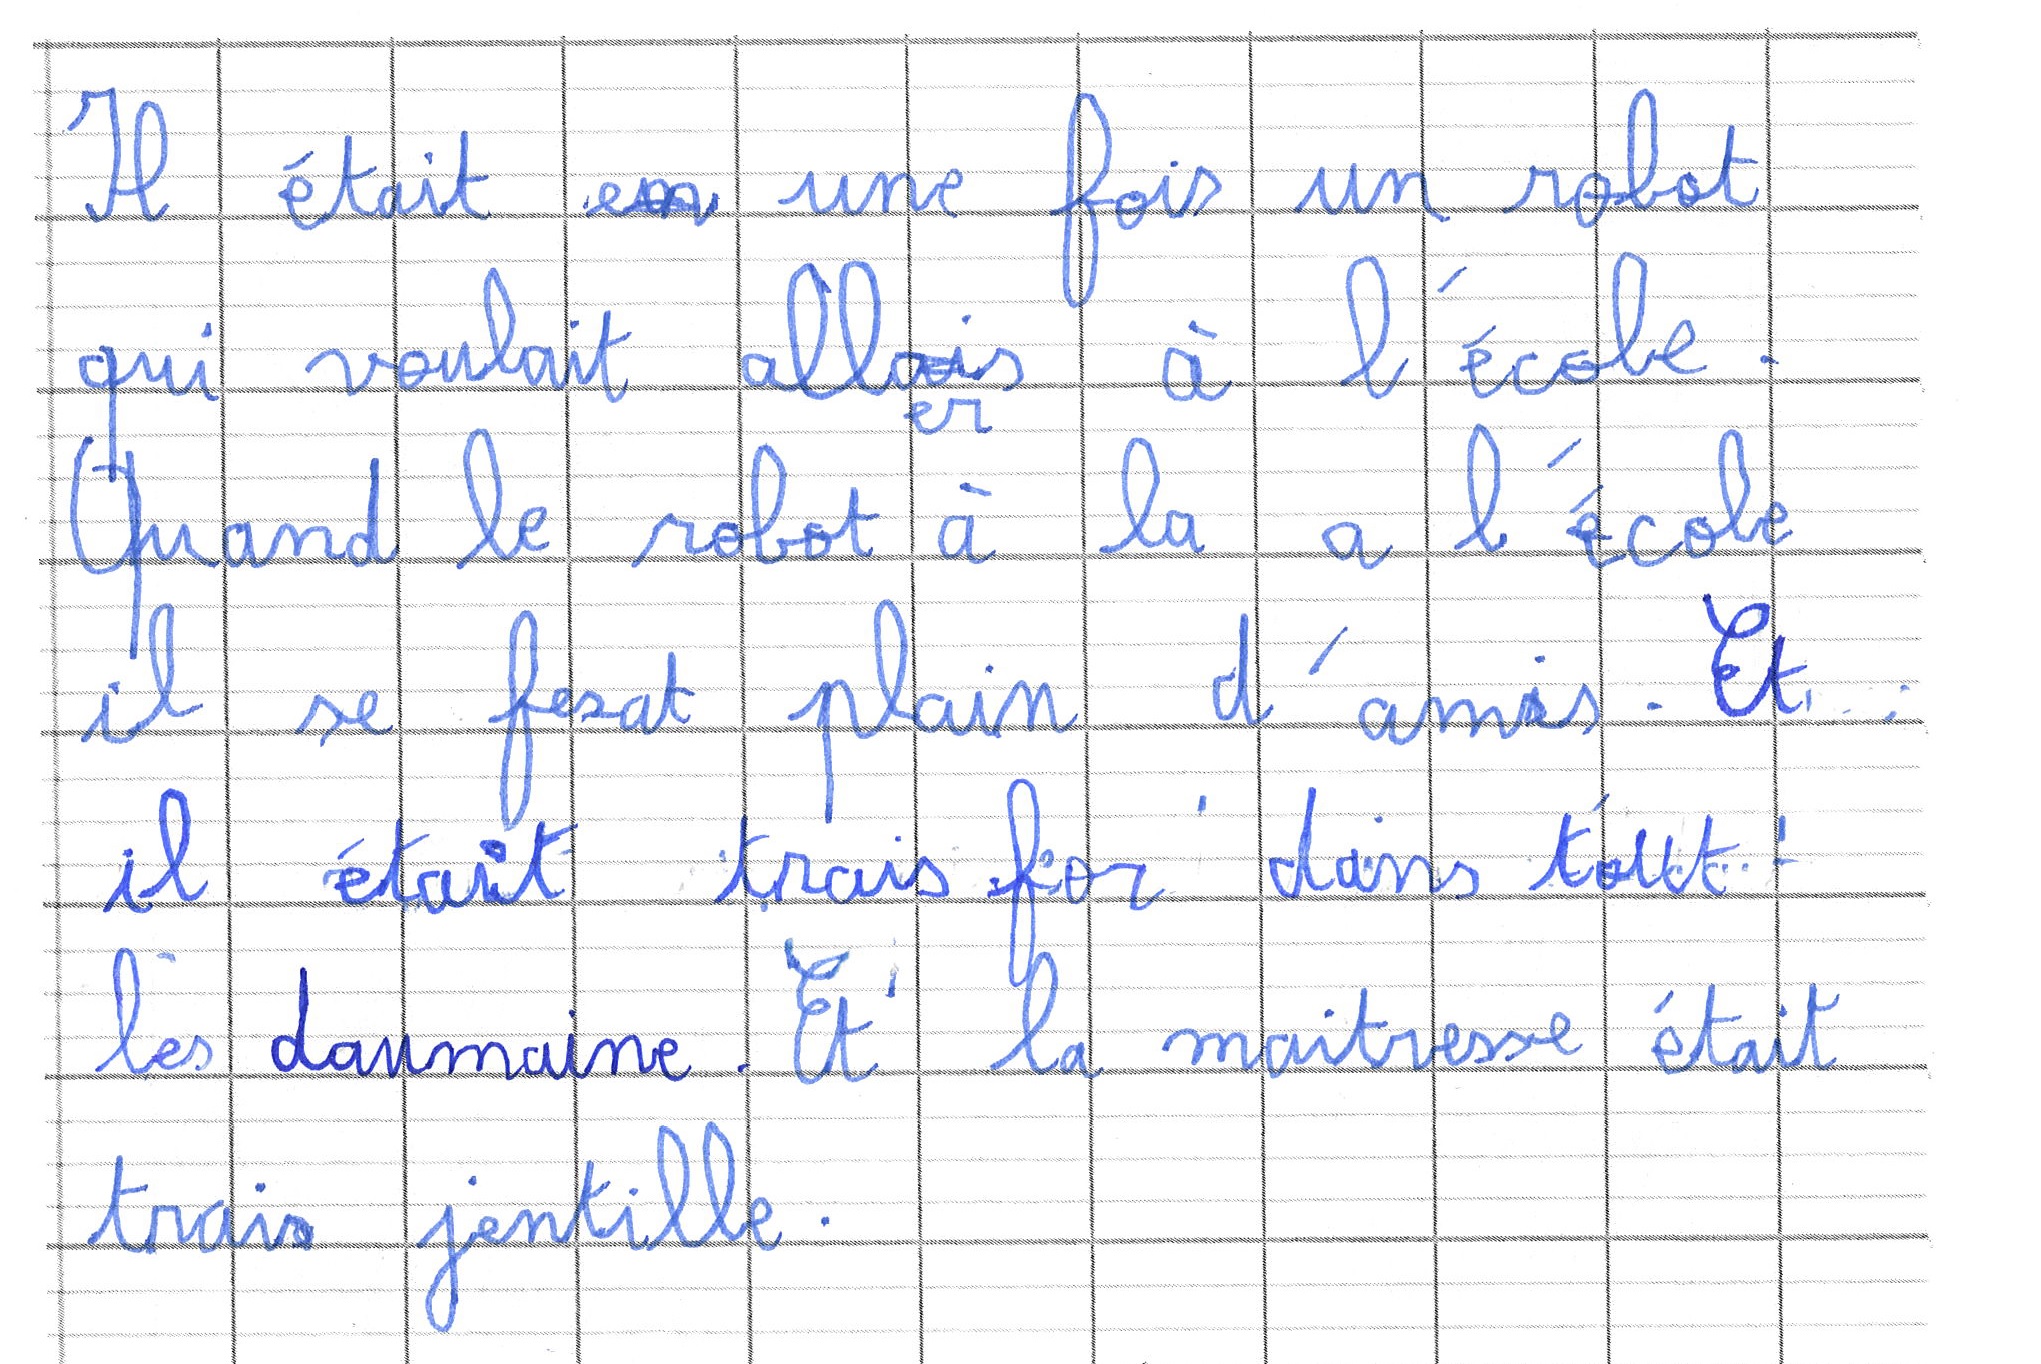 Il était en une fois un robot
qui voulait allais à l'école.
er
Quand le robot à la a l'école
il se fesat plain d'amis. Et
il était trais for dans tout
les daumaine. Et la maitresse était
trais jentille.